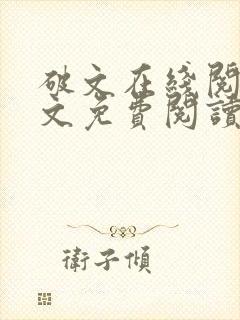 破文在綫閱
文免費閱讀
衛子傾